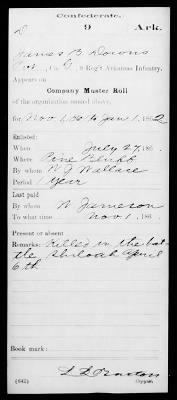 Confederate.
D 9 Ark.
James B Downs
Pvt, Co. G, 9 Reg't Arkansas Infantry.
Appears on
Company Muster Roll
of the organization named above,
for Nov 1, 61 to Jan 1, 1862
Enlisted:
When July 27, 186 .
Where Pine Bluff
By whom W J Wallace
Period 1 Year
Last paid
By whom W Jameson
To what time Nov 1, 186 .
Present or absent
Remarks: Killed in the bat
tle Shiloah April
6th
Book mark:
(642) Copyist.